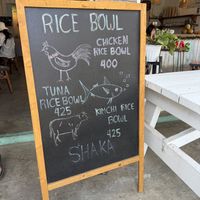 RICE BOWL
CHICKEN
RICE BOWL
400
TUNA
RICE BOWL
425
KIMCHI RICE
BOWL
425
SHAKA